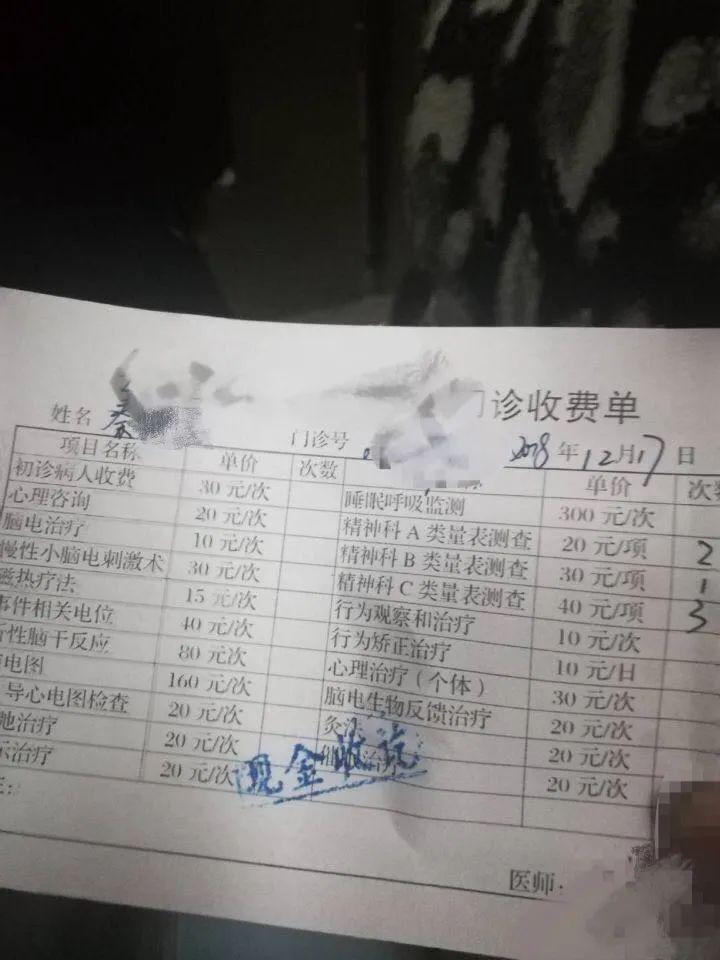 门诊收费单
姓名 秦 门诊号 2018 年 12 月 17 日
项目名称 单价 次数 单价 次数
初诊病人收费 30 元/次 睡眠呼吸监测 300 元/次
心理咨询 20 元/次 精神科 A 类量表测查 20 元/项 2
脑电治疗 10 元/次 精神科 B 类量表测查 30 元/项 1
慢性小脑电刺激术 30 元/次 精神科 C 类量表测查 40 元/项 3
磁热疗法 15 元/次 行为观察和治疗 10 元/次
事件相关电位 40 元/次 行为矫正治疗 10 元/日
性脑干反应 80 元/次 心理治疗（个体） 30 元/次
电图 160 元/次 脑电生物反馈治疗 20 元/次
导心电图检查 20 元/次 灸 20 元/次
治疗 20 元/次 催眠治疗 20 元/次
示治疗 20 元/次
现金收讫
医师：